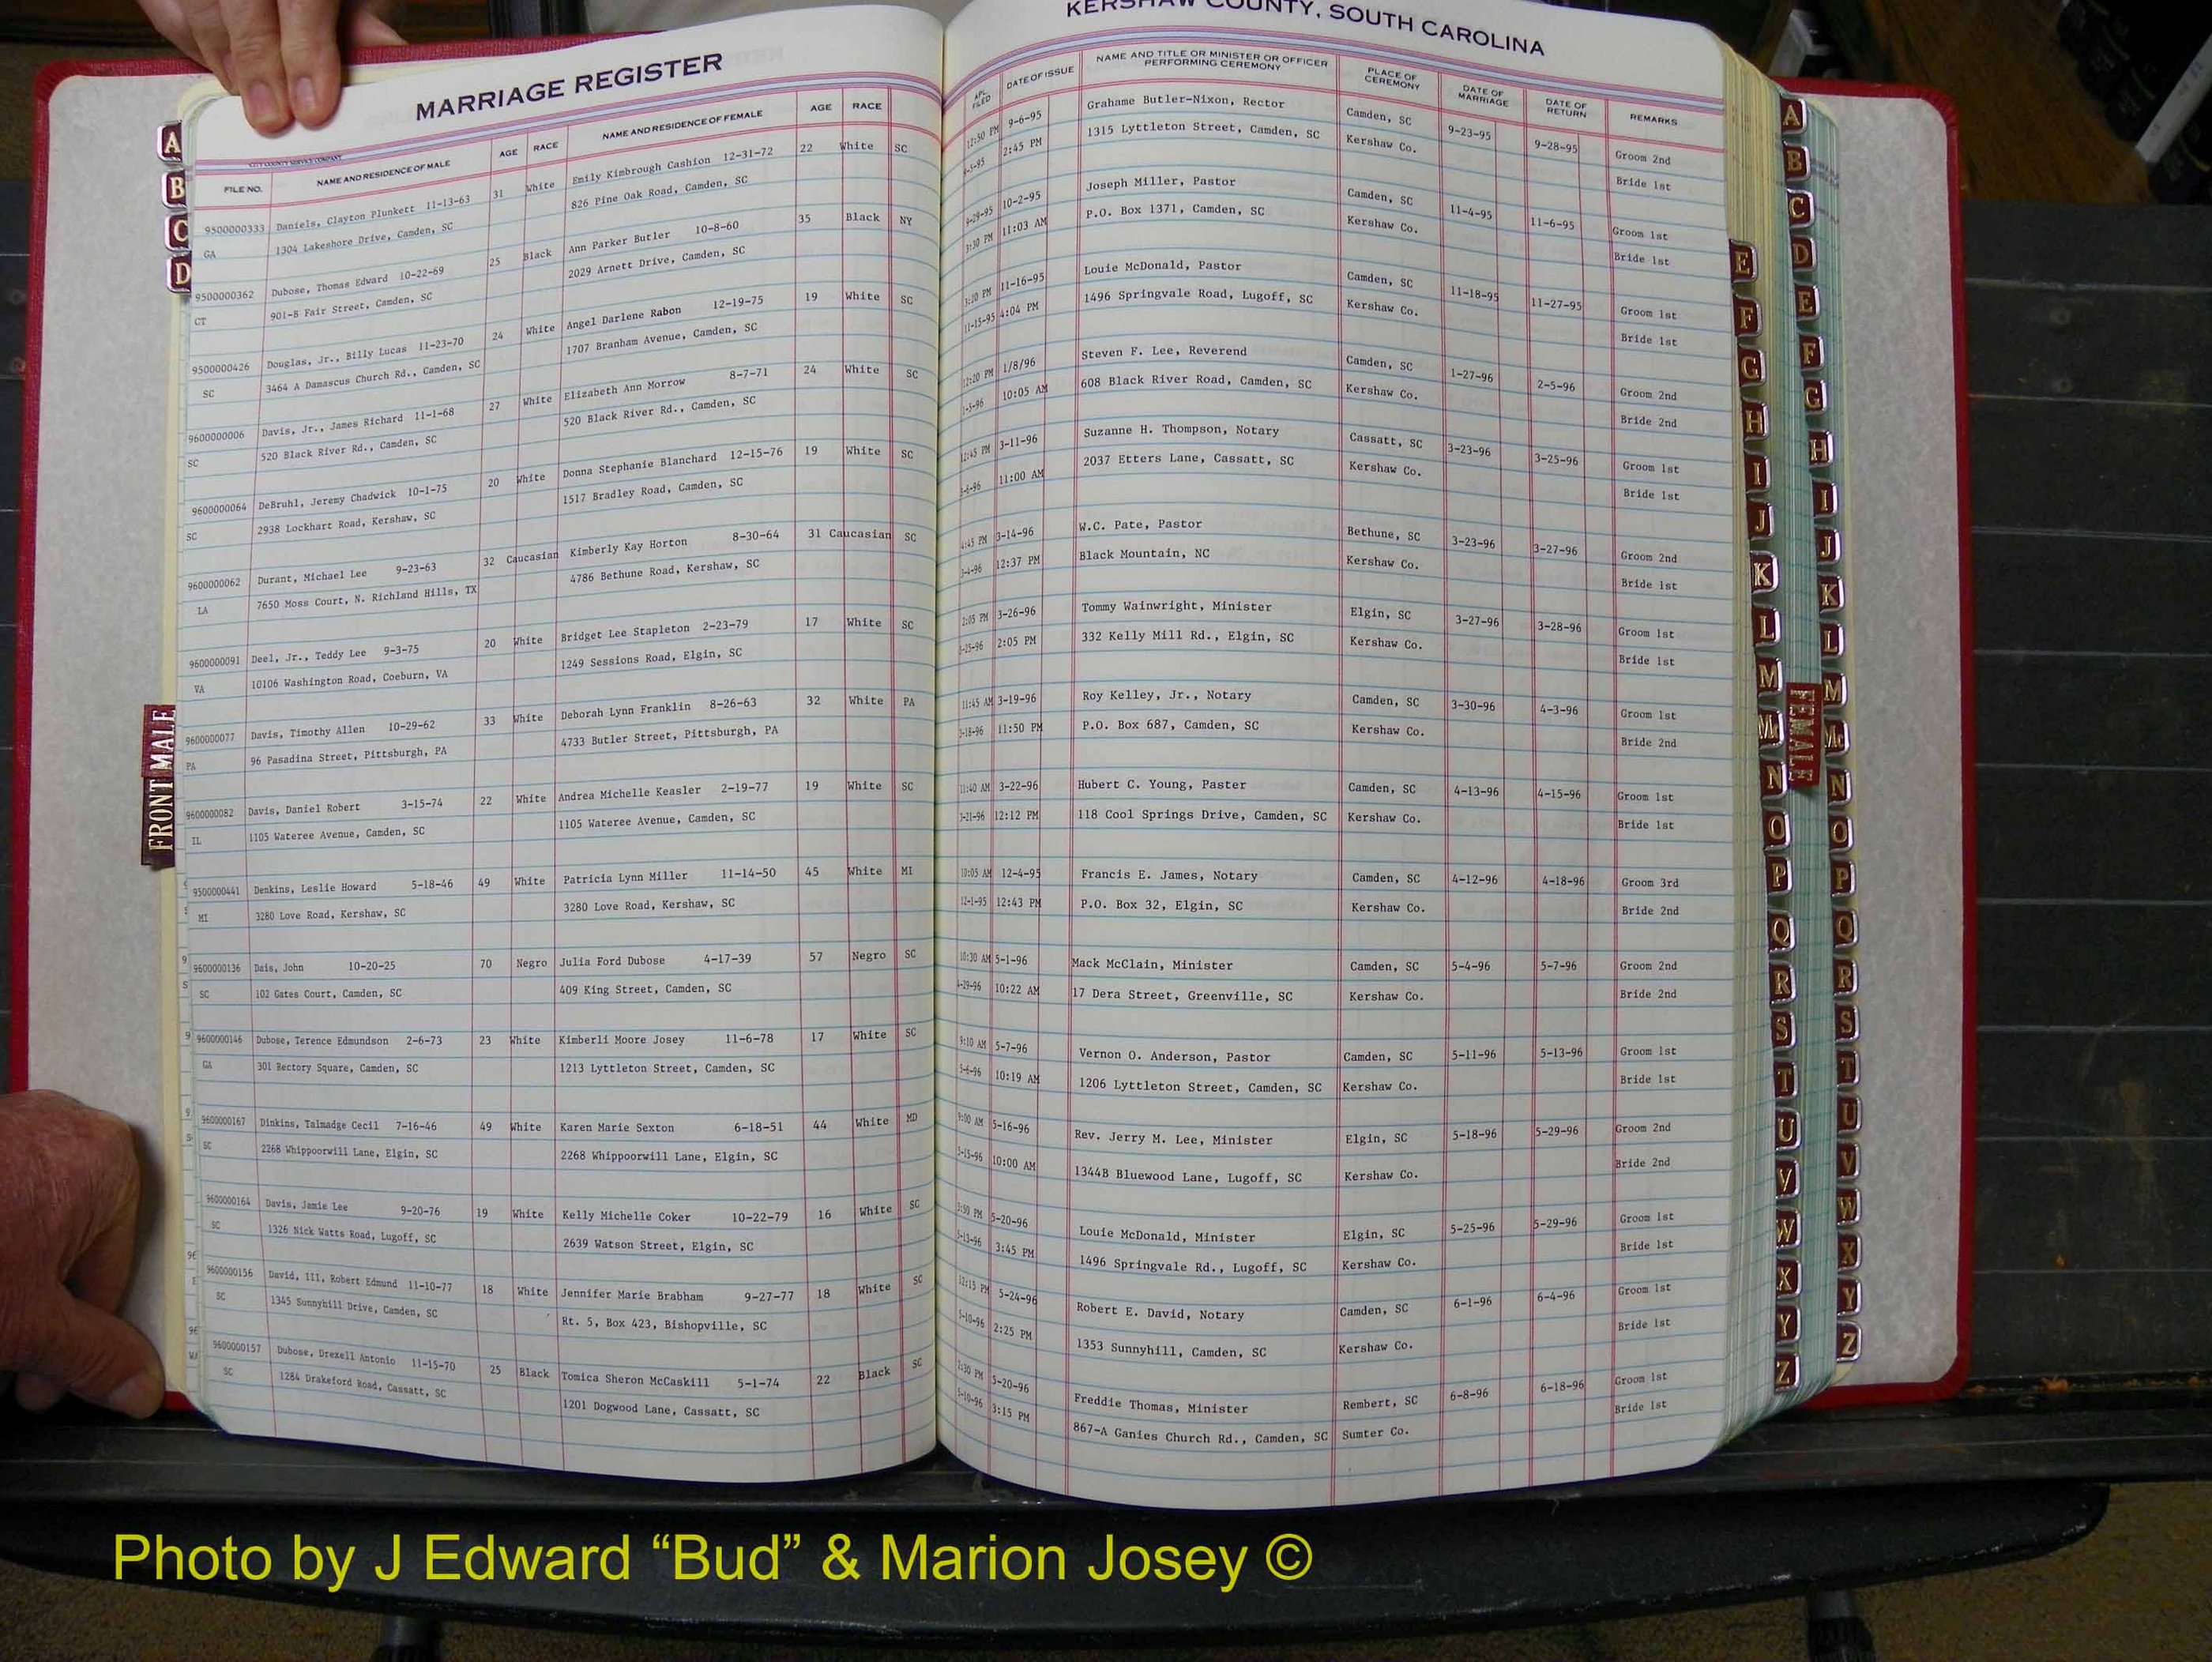 MARRIAGE REGISTER
KERSHAW COUNTY, SOUTH CAROLINA
CITY COUNTY SERVICE COMPANY
FILE NO. NAME AND RESIDENCE OF MALE AGE RACE NAME AND RESIDENCE OF FEMALE AGE RACE APL. FILED DATE OF ISSUE NAME AND TITLE OR MINISTER OR OFFICER PERFORMING CEREMONY PLACE OF CEREMONY DATE OF MARRIAGE DATE OF RETURN REMARKS
9500000333 Daniels, Clayton Plunkett 11-13-63 31 White Emily Kimbrough Cashion 12-31-72 22 White SC 12:50 PM 9-6-95 Grahame Butler-Nixon, Rector Camden, SC 9-23-95 9-28-95 Groom 2nd
GA 1304 Lakeshore Drive, Camden, SC 826 Pine Oak Road, Camden, SC 2:45 PM 1315 Lyttleton Street, Camden, SC Kershaw Co. Bride 1st
9500000362 Dubose, Thomas Edward 10-22-69 25 Black Ann Parker Butler 10-8-60 35 Black NY 10-2-95 Joseph Miller, Pastor Camden, SC 11-4-95 11-6-95 Groom 1st
CT 901-B Fair Street, Camden, SC 2029 Arnett Drive, Camden, SC 3:30 PM 11:03 AM P.O. Box 1371, Camden, SC Kershaw Co. Bride 1st
9500000426 Douglas, Jr., Billy Lucas 11-23-70 24 White Angel Darlene Rabon 12-19-75 19 White SC 3:20 PM 11-16-95 Louie McDonald, Pastor Camden, SC 11-18-95 11-27-95 Groom 1st
SC 3464 A Damascus Church Rd., Camden, SC 1707 Branham Avenue, Camden, SC 11-15-95 4:04 PM 1496 Springvale Road, Lugoff, SC Kershaw Co. Bride 1st
9600000006 Davis, Jr., James Richard 11-1-68 27 White Elizabeth Ann Morrow 8-7-71 24 White SC 12:20 PM 1/8/96 Steven F. Lee, Reverend Camden, SC 1-27-96 2-5-96 Groom 2nd
SC 520 Black River Rd., Camden, SC 520 Black River Rd., Camden, SC 1-5-96 10:05 AM 608 Black River Road, Camden, SC Kershaw Co. Bride 2nd
9600000064 DeBruhl, Jeremy Chadwick 10-1-75 20 White Donna Stephanie Blanchard 12-15-76 19 White SC 12:45 PM 3-11-96 Suzanne H. Thompson, Notary Cassatt, SC 3-23-96 3-25-96 Groom 1st
SC 2938 Lockhart Road, Kershaw, SC 1517 Bradley Road, Camden, SC 11:00 AM 2037 Etters Lane, Cassatt, SC Kershaw Co. Bride 1st
9600000062 Durant, Michael Lee 9-23-63 32 Caucasian Kimberly Kay Horton 8-30-64 31 Caucasian SC 4:45 PM 3-14-96 W.C. Pate, Pastor Bethune, SC 3-23-96 3-27-96 Groom 2nd
LA 7650 Moss Court, N. Richland Hills, TX 4786 Bethune Road, Kershaw, SC 3-4-96 12:37 PM Black Mountain, NC Kershaw Co. Bride 1st
9600000091 Deel, Jr., Teddy Lee 9-3-75 20 White Bridget Lee Stapleton 2-23-79 17 White SC 2:05 PM 3-26-96 Tommy Wainwright, Minister Elgin, SC 3-27-96 3-28-96 Groom 1st
VA 10106 Washington Road, Coeburn, VA 1249 Sessions Road, Elgin, SC 3-25-96 2:05 PM 332 Kelly Mill Rd., Elgin, SC Kershaw Co. Bride 1st
9600000077 Davis, Timothy Allen 10-29-62 33 White Deborah Lynn Franklin 8-26-63 32 White PA 11:45 AM 3-19-96 Roy Kelley, Jr., Notary Camden, SC 3-30-96 4-3-96 Groom 1st
PA 96 Pasadina Street, Pittsburgh, PA 4733 Butler Street, Pittsburgh, PA 3-18-96 11:50 PM P.O. Box 687, Camden, SC Kershaw Co. Bride 2nd
9600000082 Davis, Daniel Robert 3-15-74 22 White Andrea Michelle Keasler 2-19-77 19 White SC 11:40 AM 3-22-96 Hubert C. Young, Paster Camden, SC 4-13-96 4-15-96 Groom 1st
IL 1105 Wateree Avenue, Camden, SC 1105 Wateree Avenue, Camden, SC 3-21-96 12:12 PM 118 Cool Springs Drive, Camden, SC Kershaw Co. Bride 1st
9500000441 Denkins, Leslie Howard 5-18-46 49 White Patricia Lynn Miller 11-14-50 45 White MI 10:05 AM 12-4-95 Francis E. James, Notary Camden, SC 4-12-96 4-18-96 Groom 3rd
MI 3280 Love Road, Kershaw, SC 3280 Love Road, Kershaw, SC 12-1-95 12:43 PM P.O. Box 32, Elgin, SC Kershaw Co. Bride 2nd
9600000136 Dais, John 10-20-25 70 Negro Julia Ford Dubose 4-17-39 57 Negro SC 10:30 AM 5-1-96 Mack McClain, Minister Camden, SC 5-4-96 5-7-96 Groom 2nd
SC 102 Gates Court, Camden, SC 409 King Street, Camden, SC 4-29-96 10:22 AM 17 Dera Street, Greenville, SC Kershaw Co. Bride 2nd
9600000146 Dubose, Terence Edmundson 2-6-73 23 White Kimberli Moore Josey 11-6-78 17 White SC 9:10 AM 5-7-96 Vernon O. Anderson, Pastor Camden, SC 5-11-96 5-13-96 Groom 1st
GA 301 Rectory Square, Camden, SC 1213 Lyttleton Street, Camden, SC 5-6-96 10:19 AM 1206 Lyttleton Street, Camden, SC Kershaw Co. Bride 1st
9600000167 Dinkins, Talmadge Cecil 7-16-46 49 White Karen Marie Sexton 6-18-51 44 White MD 9:00 AM 5-16-96 Rev. Jerry M. Lee, Minister Elgin, SC 5-18-96 5-29-96 Groom 2nd
SC 2268 Whippoorwill Lane, Elgin, SC 2268 Whippoorwill Lane, Elgin, SC 5-15-96 10:00 AM 1344B Bluewood Lane, Lugoff, SC Kershaw Co. Bride 2nd
9600000164 Davis, Jamie Lee 9-20-76 19 White Kelly Michelle Coker 10-22-79 16 White SC 3:50 PM 5-20-96 Louie McDonald, Minister Elgin, SC 5-25-96 5-29-96 Groom 1st
SC 1326 Nick Watts Road, Lugoff, SC 2639 Watson Street, Elgin, SC 5-13-96 3:45 PM 1496 Springvale Rd., Lugoff, SC Kershaw Co. Bride 1st
9600000156 David, III, Robert Edmund 11-10-77 18 White Jennifer Marie Brabham 9-27-77 18 White SC 12:15 PM 5-24-96 Robert E. David, Notary Camden, SC 6-1-96 6-4-96 Groom 1st
SC 1345 Sunnyhill Drive, Camden, SC Rt. 5, Box 423, Bishopville, SC 5-10-96 2:25 PM 1353 Sunnyhill, Camden, SC Kershaw Co. Bride 1st
9600000157 Dubose, Drezell Antonio 11-15-70 25 Black Tomica Sheron McCaskill 5-1-74 22 Black SC 2:30 PM 5-20-96 Freddie Thomas, Minister Rembert, SC 6-8-96 6-18-96 Groom 1st
SC 1284 Drakeford Road, Cassatt, SC 1201 Dogwood Lane, Cassatt, SC 5-10-96 3:15 PM 867-A Ganies Church Rd., Camden, SC Sumter Co. Bride 1st
A
B
C
D
FRONT MALE
E
F
G
H
I
J
K
L
M
Mc
N
O
P
Q
R
S
T
U
V
W
X
Y
Z
FEMALE
A
B
C
D
E
F
G
H
I
J
K
L
M
Mc
N
O
P
Q
R
S
T
U
V
W
X
Y
Z
Photo by J Edward “Bud” & Marion Josey ©